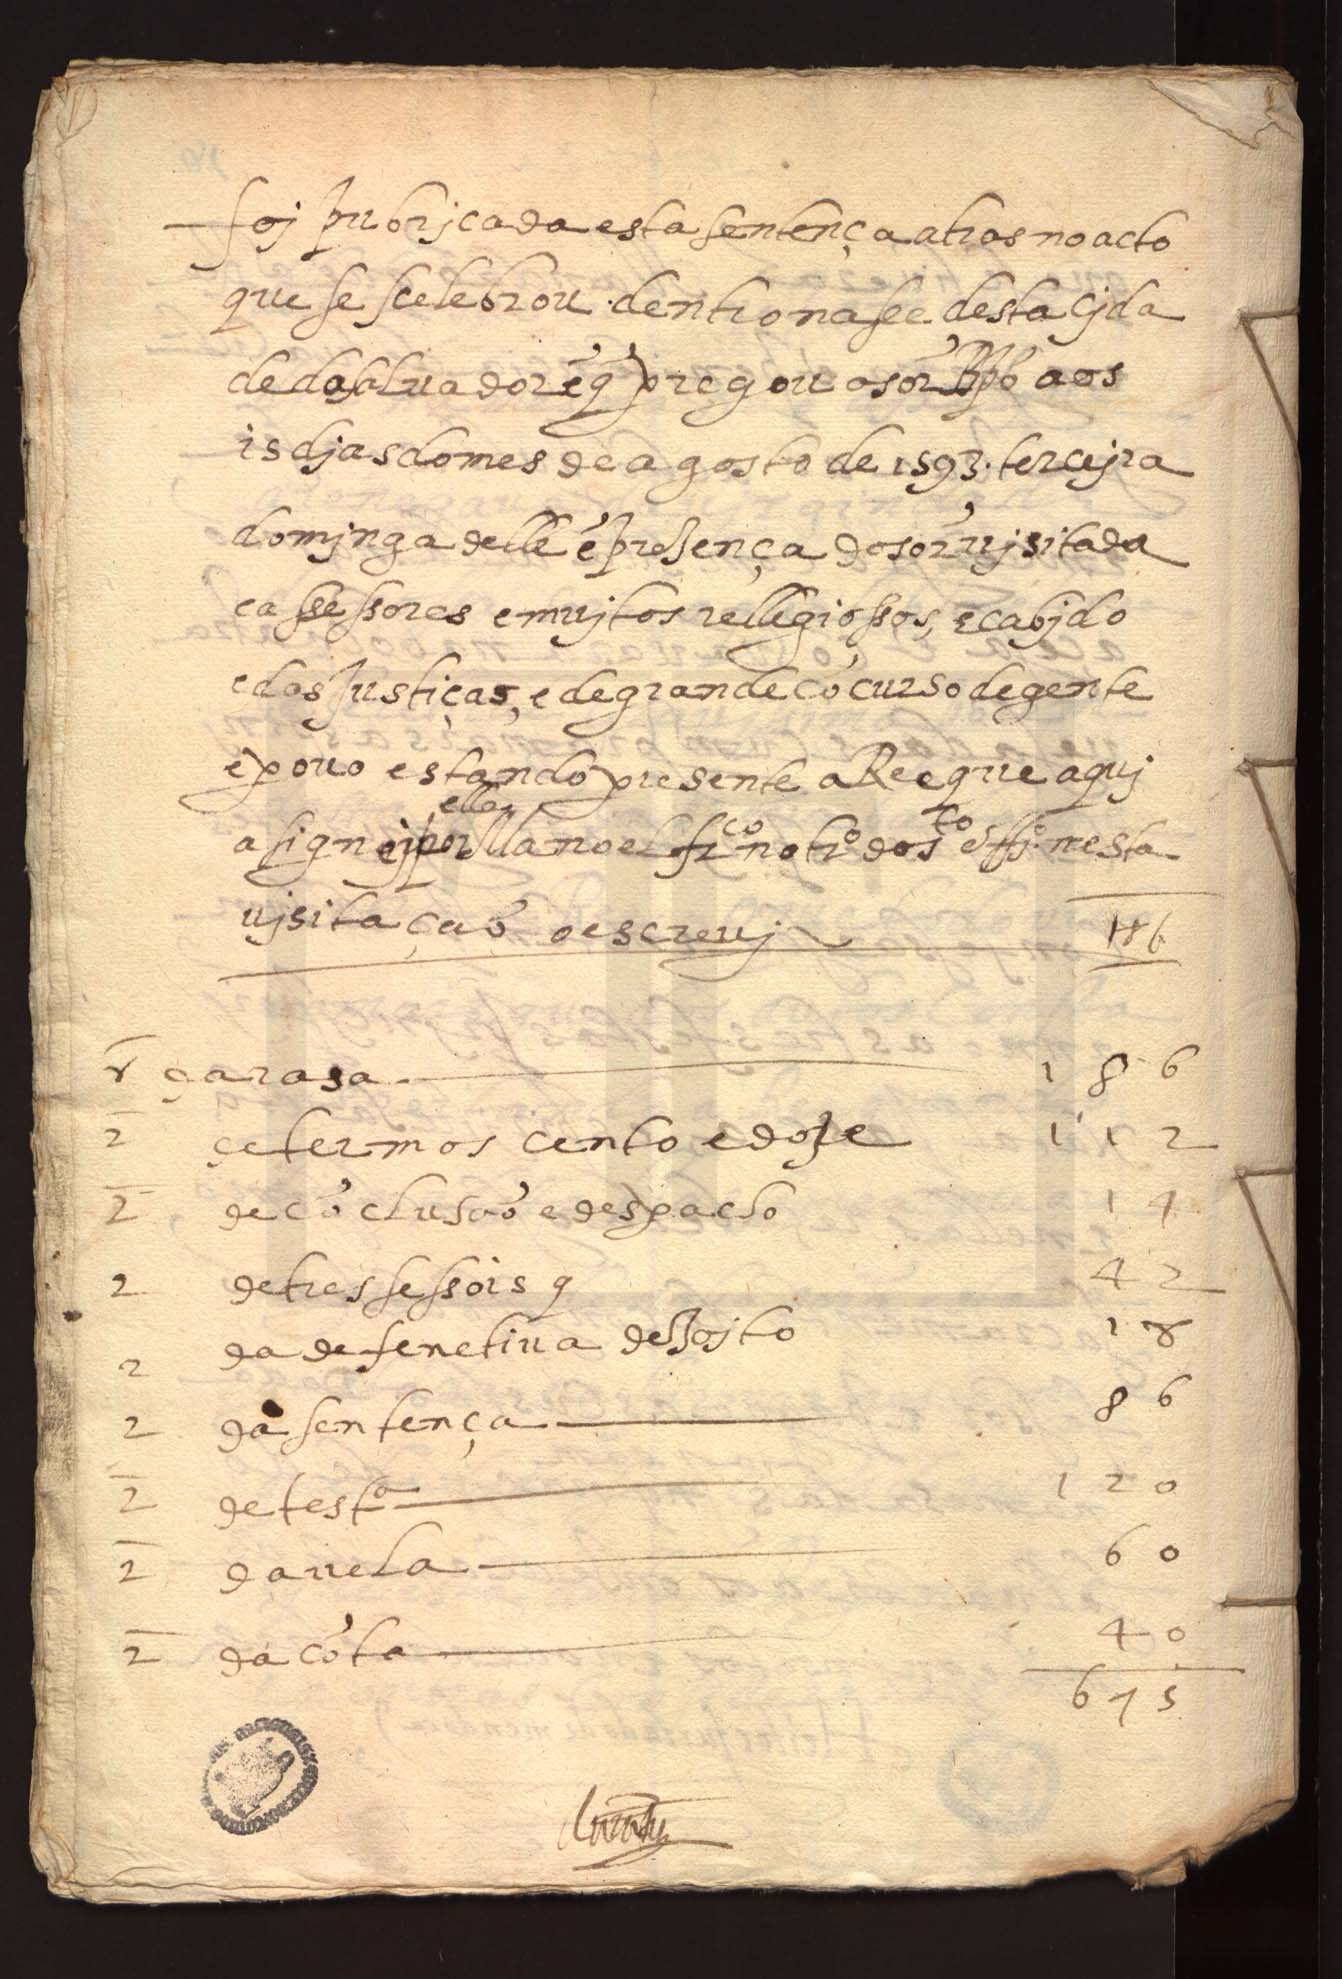 foj pubrjcada esta sentença atras no acto
que se scelebrou dentro na see desta cjda
de do saluador ẽ q̃ pregou o sõr Bpõ aos
15 djas do mes de agosto de 1593. tercejra
domjnga delle ẽ presença do sõr vjsitada
e assessores e mujtos rellegiossos, e cabjdo
e das justiças, e de grande cõcurso de gente
e pouo estando presente a Ree que aquj
ella
asignej por Manoel frco notro do sto offjo. nesta
vjsitação o escreuj
186
da rasa 186
de termos cento e doze 112
de cõclusão e despacho 14
de tres sessõis 42
da defenetiua dezojto 18
da sentença 86
de testo 120
da uela 60
da cõta 40
675